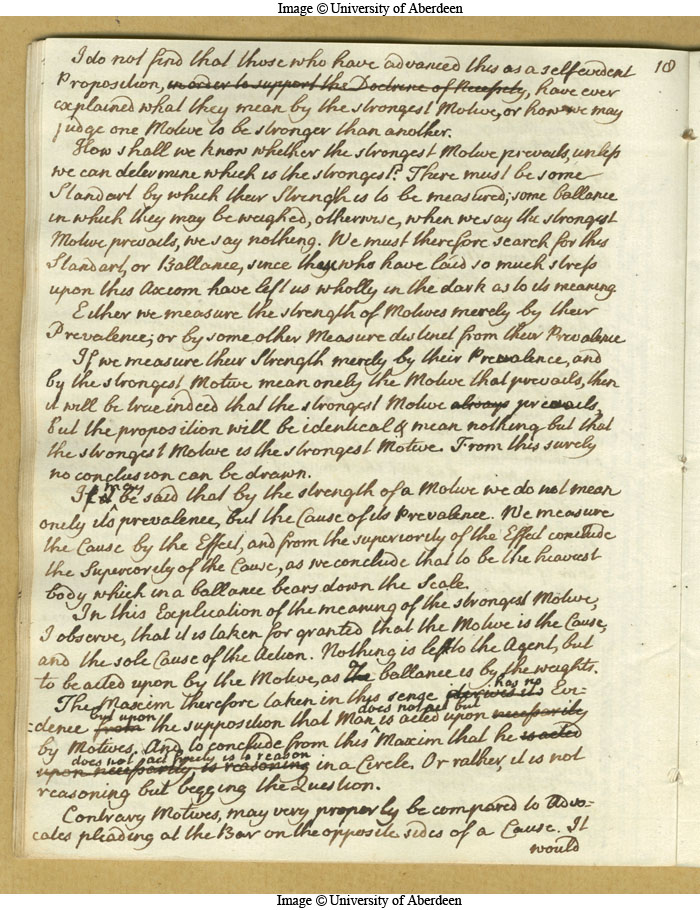 Image © University of Aberdeen
10
I do not find that those who have advanced this as a selfevident
Proposition, in order to support the Doctrine of Necessity, have ever
explained what they mean by the strongest Motive, or how we may
judge one Motive to be stronger than another.
How shall we know whether the strongest Motive prevails, unless
we can determine which is the strongest? There must be some
Standart by which their Strength is to be measured; some ballance
in which they may be weighed, otherwise, when we say the strongest
Motive prevails, we say nothing. We must therefore search for this
Standart, or Ballance, since they who have laid so much stress
upon this Axiom have left us wholly in the dark as to its meaning
Either we measure the strength of Motives merely by their
Prevalence; or by some other Measure distinct from their Prevalence
If we measure their Strength merely by their Prevalence, and
by the strongest Motive mean onely the Motive that prevails, then
it will be true indeed that the strongest Motive always prevails,
But the proposition will be identical & mean nothing but that
the strongest Motive is the strongest Motive. From this surely
no conclusion can be drawn.
may
It be said that by the strength of a Motive we do not mean
onely its prevalence, but the Cause of its Prevalence. We measure
the Cause by the Effect, and from the superiority of the Effect conclude
the Superiority of the Cause, as we conclude that to be the heaviest
body which in a ballance bears down the Scale.
In this Explication of the meaning of the strongest Motive,
I observe, that it is taken for granted that the Motive is the Cause,
and the sole Cause of the Action. Nothing is left to the Agent, but
to be acted upon by the Motive, as the ballance is by the weights.
has no
The Maxim therefore taken in this sense its Evi-
but upon does not act but
dence from the supposition that Man is acted upon necessarily
by Motives. And to conclude from this Maxim that he is acted
does not act freely is to reason
upon necessarily, is reasoning in a Circle. Or rather, it is not
reasoning but begging the Question.
Contrary Motives, may very properly be compared to Advo-
cates pleading at the Bar on the opposite sides of a Cause. It
would
Image © University of Aberdeen